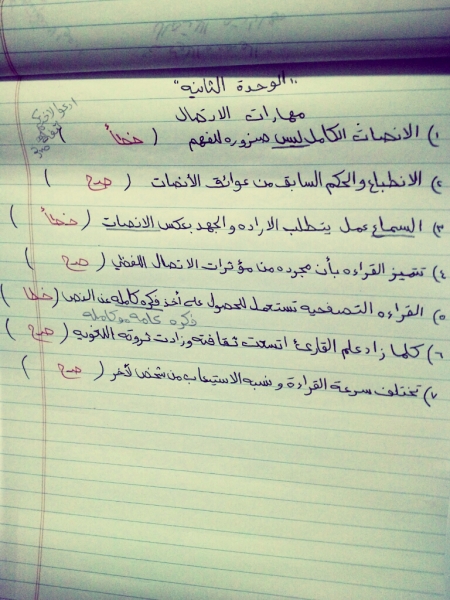 "الوحدة الثانيه"
مهارات الاتصال
١) الانصات الكامل ليس ضروره للفهم ( خطأ )
٢) الانطباع والحكم السابق من عوائق الأنصات ( صح )
٣) السماع عمل يتطلب الاراده والجهد بعكس الانصات ( خطأ )
٤) تتميز القراءه بأن مجرده من مؤثرات الاتصال اللفظي ( صح )
٥) القراءه التصفحية تستعمل للحصول على أخذ فكره كامله عن النص ( خطا )
فكره عامه وكامله
٦) كلما زاد علم القارئ اتسعت ثقافته وزادت ثروته اللغويه ( صح )
٧) تختلف سرعة القراءة ونسبه الاستيعاب من شخص لآخر ( صح )